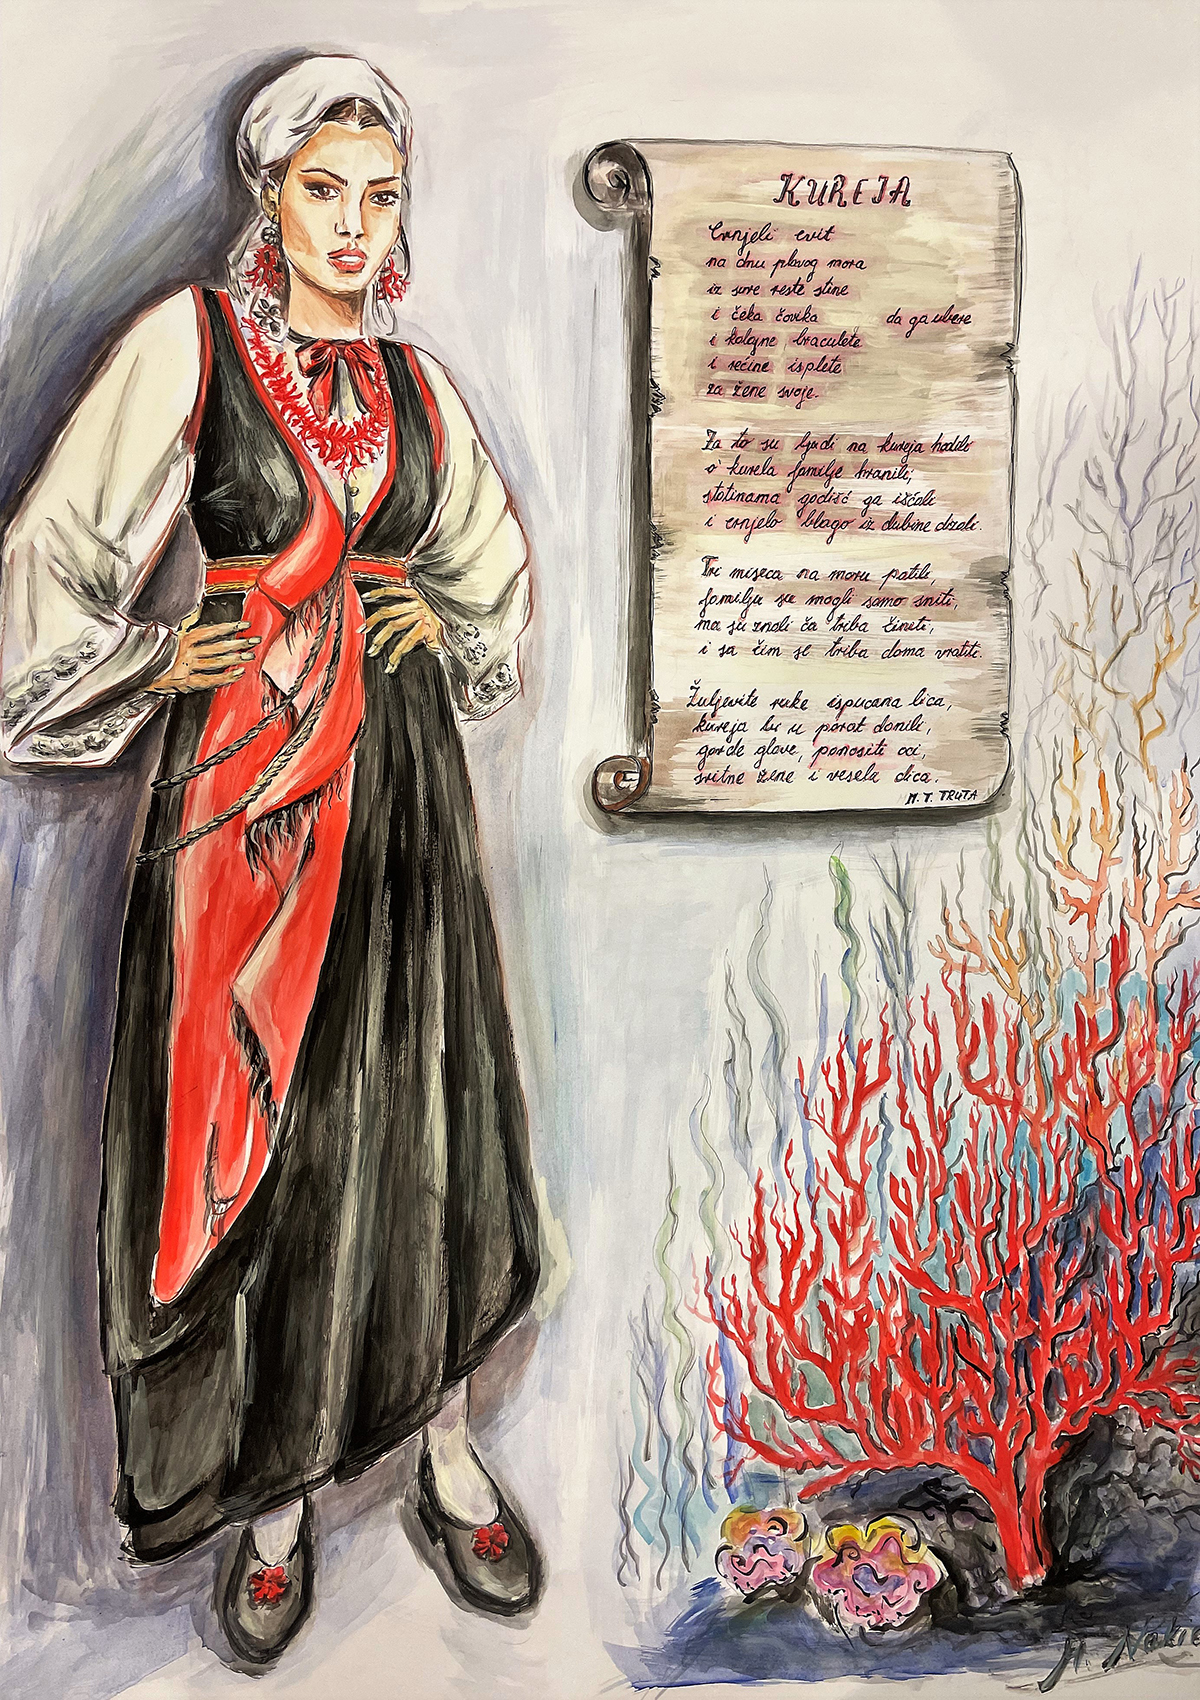 KUREJA
Crnjeli cvit
na dnu plavog mora
iz sure reste stine
i čeka čovika da ga ubere
i kolajne, braculete
i rećine isplete
za žene svoje.
Za to su ljudi na kureja hodili
o' kurela familje hranili,
stotinama godišć ga išćali
i crnjelo blago iz dubine dizali.
Tri miseca na moru patili,
familju su mogli samo sniti,
ma su znali ča triba činiti,
i sa čim se triba doma vratiti.
Žuljevite ruke ispucana lica,
kureja bi u porat donili,
gorde glave, ponositi oci,
sritne žene i vesela dica.
M. T. TRUTA